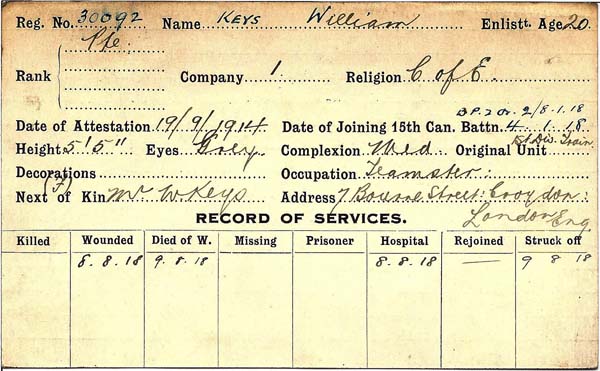 Reg. No. 30092 Name KEYS William Enlistt. Age 20
Pte.
Rank Company 1 Religion C of E.
B.P. 2 Or. 2/8.1.18
Date of Attestation 19/9/1914 Date of Joining 15th Can. Battn. 4. 1. 18
Height 5'5" Eyes Grey Complexion Med Original Unit 1st Div. Train
Decorations Occupation Teamster:
(F)
Next of Kin Mr W Keys Address 7 Bourne Street: Croydon:
London Eng
RECORD OF SERVICES.
Killed Wounded Died of W. Missing Prisoner Hospital Rejoined Struck off
8. 8. 18 9. 8. 18 8. 8. 18 — 9 8 18